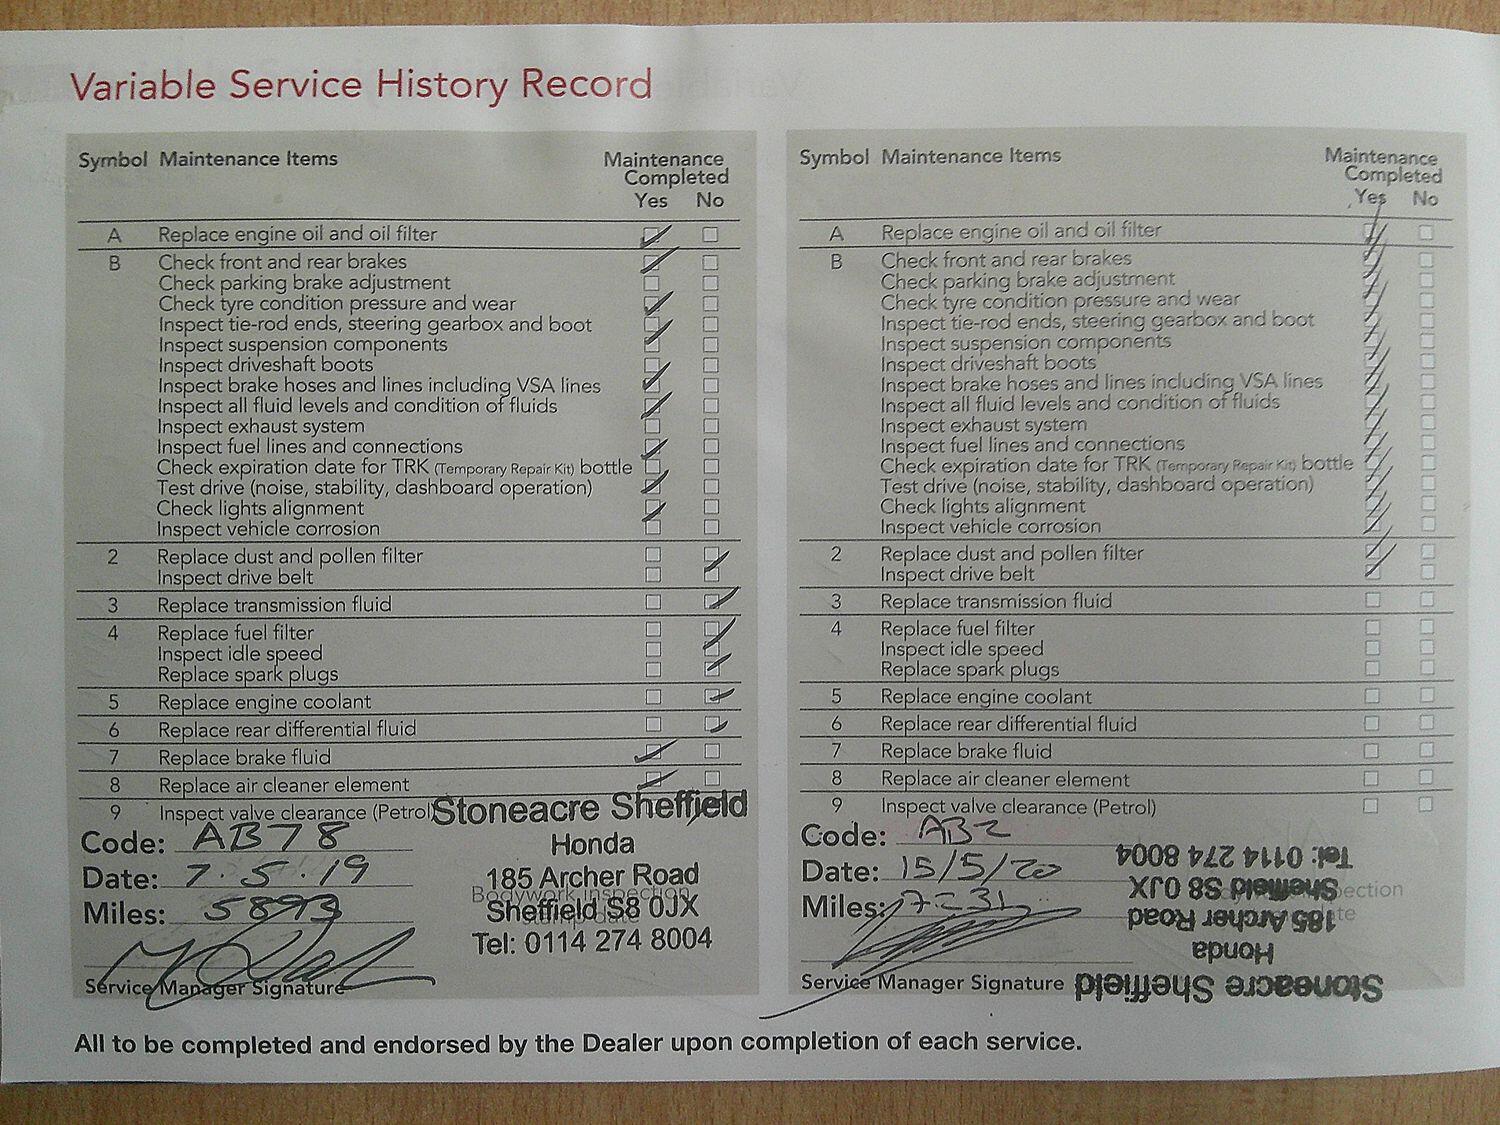 Variable Service History Record
Symbol Maintenance Items Maintenance Completed
Yes No
A Replace engine oil and oil filter
B Check front and rear brakes
Check parking brake adjustment
Check tyre condition pressure and wear
Inspect tie-rod ends, steering gearbox and boot
Inspect suspension components
Inspect driveshaft boots
Inspect brake hoses and lines including VSA lines
Inspect all fluid levels and condition of fluids
Inspect exhaust system
Inspect fuel lines and connections
Check expiration date for TRK (Temporary Repair Kit) bottle
Test drive (noise, stability, dashboard operation)
Check lights alignment
Inspect vehicle corrosion
2 Replace dust and pollen filter
Inspect drive belt
3 Replace transmission fluid
4 Replace fuel filter
Inspect idle speed
Replace spark plugs
5 Replace engine coolant
6 Replace rear differential fluid
7 Replace brake fluid
8 Replace air cleaner element
9 Inspect valve clearance (Petrol)
Stoneacre Sheffield
Honda
185 Archer Road
Sheffield S8 0JX
Tel: 0114 274 8004
Bodywork inspection
stamp date
Code: AB78
Date: 7.5.19
Miles: 5893
Service Manager Signature
Symbol Maintenance Items Maintenance Completed
Yes No
A Replace engine oil and oil filter
B Check front and rear brakes
Check parking brake adjustment
Check tyre condition pressure and wear
Inspect tie-rod ends, steering gearbox and boot
Inspect suspension components
Inspect driveshaft boots
Inspect brake hoses and lines including VSA lines
Inspect all fluid levels and condition of fluids
Inspect exhaust system
Inspect fuel lines and connections
Check expiration date for TRK (Temporary Repair Kit) bottle
Test drive (noise, stability, dashboard operation)
Check lights alignment
Inspect vehicle corrosion
2 Replace dust and pollen filter
Inspect drive belt
3 Replace transmission fluid
4 Replace fuel filter
Inspect idle speed
Replace spark plugs
5 Replace engine coolant
6 Replace rear differential fluid
7 Replace brake fluid
8 Replace air cleaner element
9 Inspect valve clearance (Petrol)
Code: AB2
Date: 15/5/20
Miles: 7231
Service Manager Signature
Stoneacre Sheffield
Honda
185 Archer Road
Sheffield S8 0JX
Tel: 0114 274 8004
All to be completed and endorsed by the Dealer upon completion of each service.